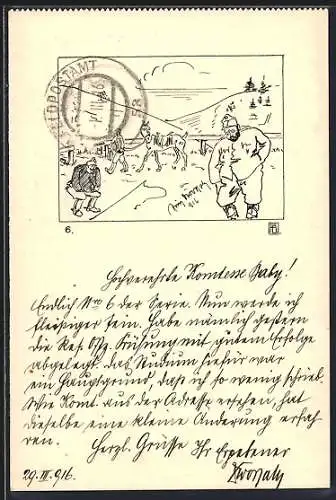 FELDPOSTAMT
53
916
6.
Hochverehrte Komtesse Baby!
Endlich Nro 6 der Serie. Nun werde ich
fleissiger sein. Habe nämlich gestern
die Res. Offz. Prüfung mit gutem Erfolge
abgelegt. Das Studium hiefür war
ein Hauptgrund, daß ich so wenig schrieb.
Wie Komt. aus der Adresse ersehen, hat
dieselbe eine kleine Änderung erfah
ren. Herzl. Grüsse Ihr Ergebener
29. III. 916.